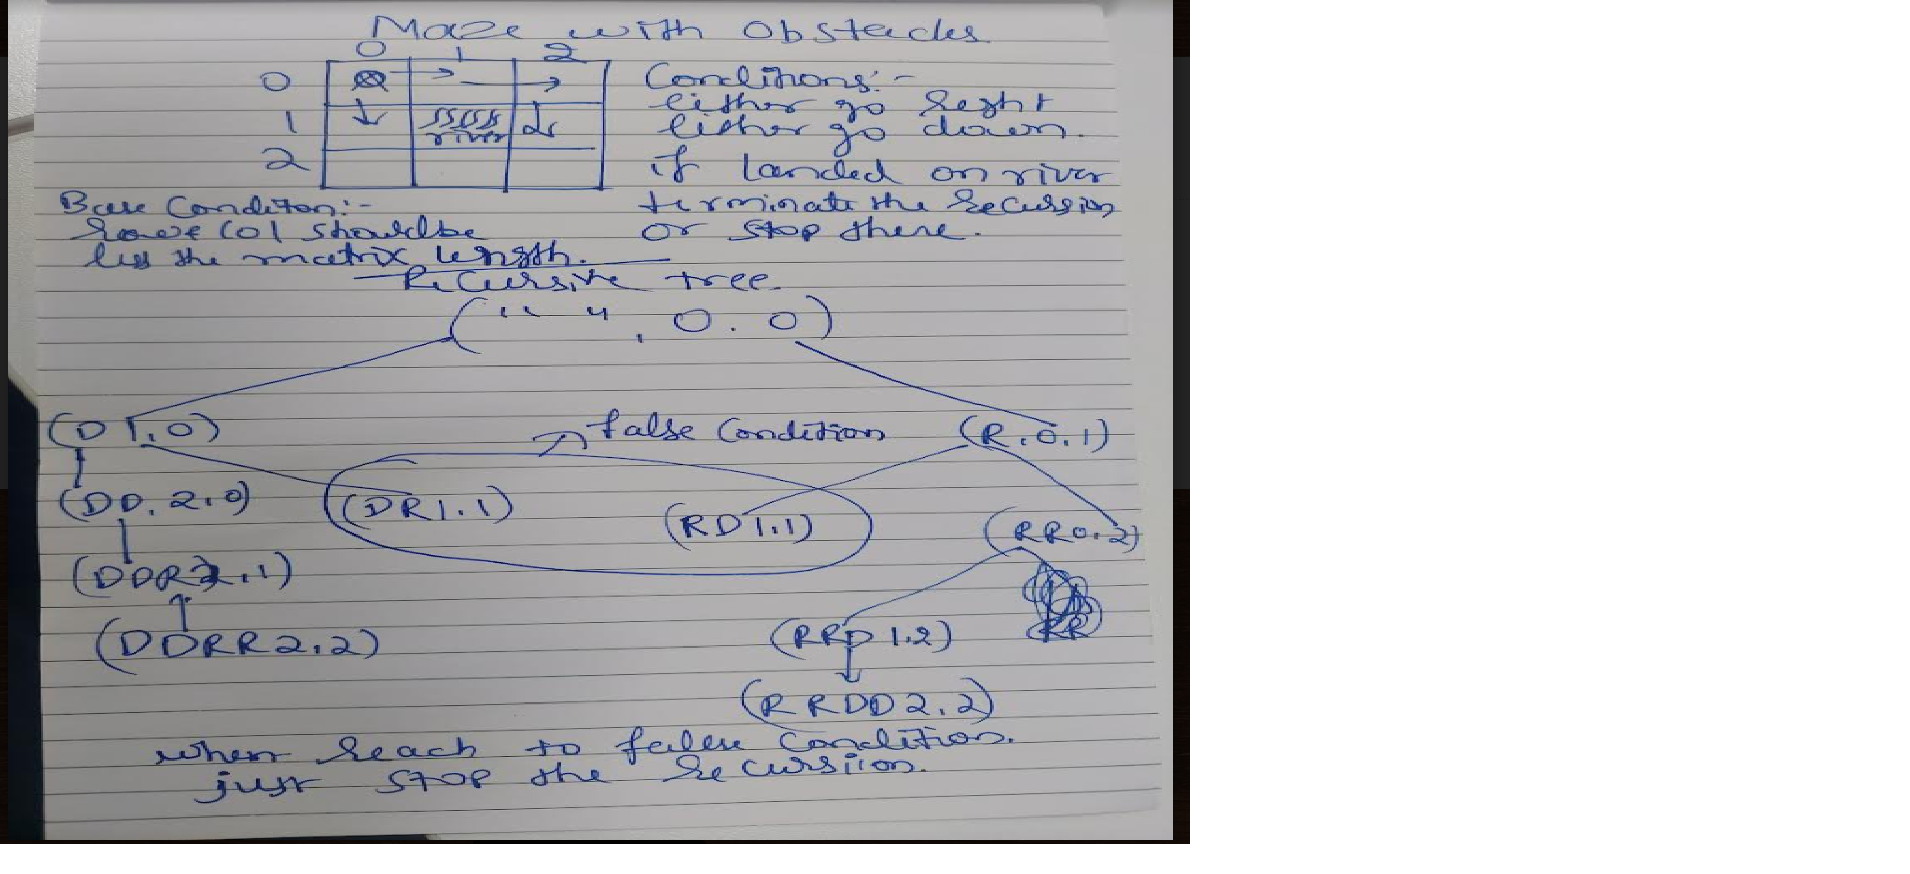 Maze with Obstacles
0 1 2
0
1
river
2
Conditions:-
either go Right
either go down.
if landed on river
terminate the Recursion
or stop there.
Base Condition:-
Row & Col should be
less the matrix length.
Recursive tree
(" ", 0.0)
(D 1,0)
false Condition
(R,0,1)
(DD, 2,0)
(DR1,1)
(RD 1,1)
(RR0,2)
(DDR2,1)
RR
(DDRR2,2)
(RRD 1,2)
(RRDD 2,2)
when Reach to false Condition.
just stop the Recursiion.